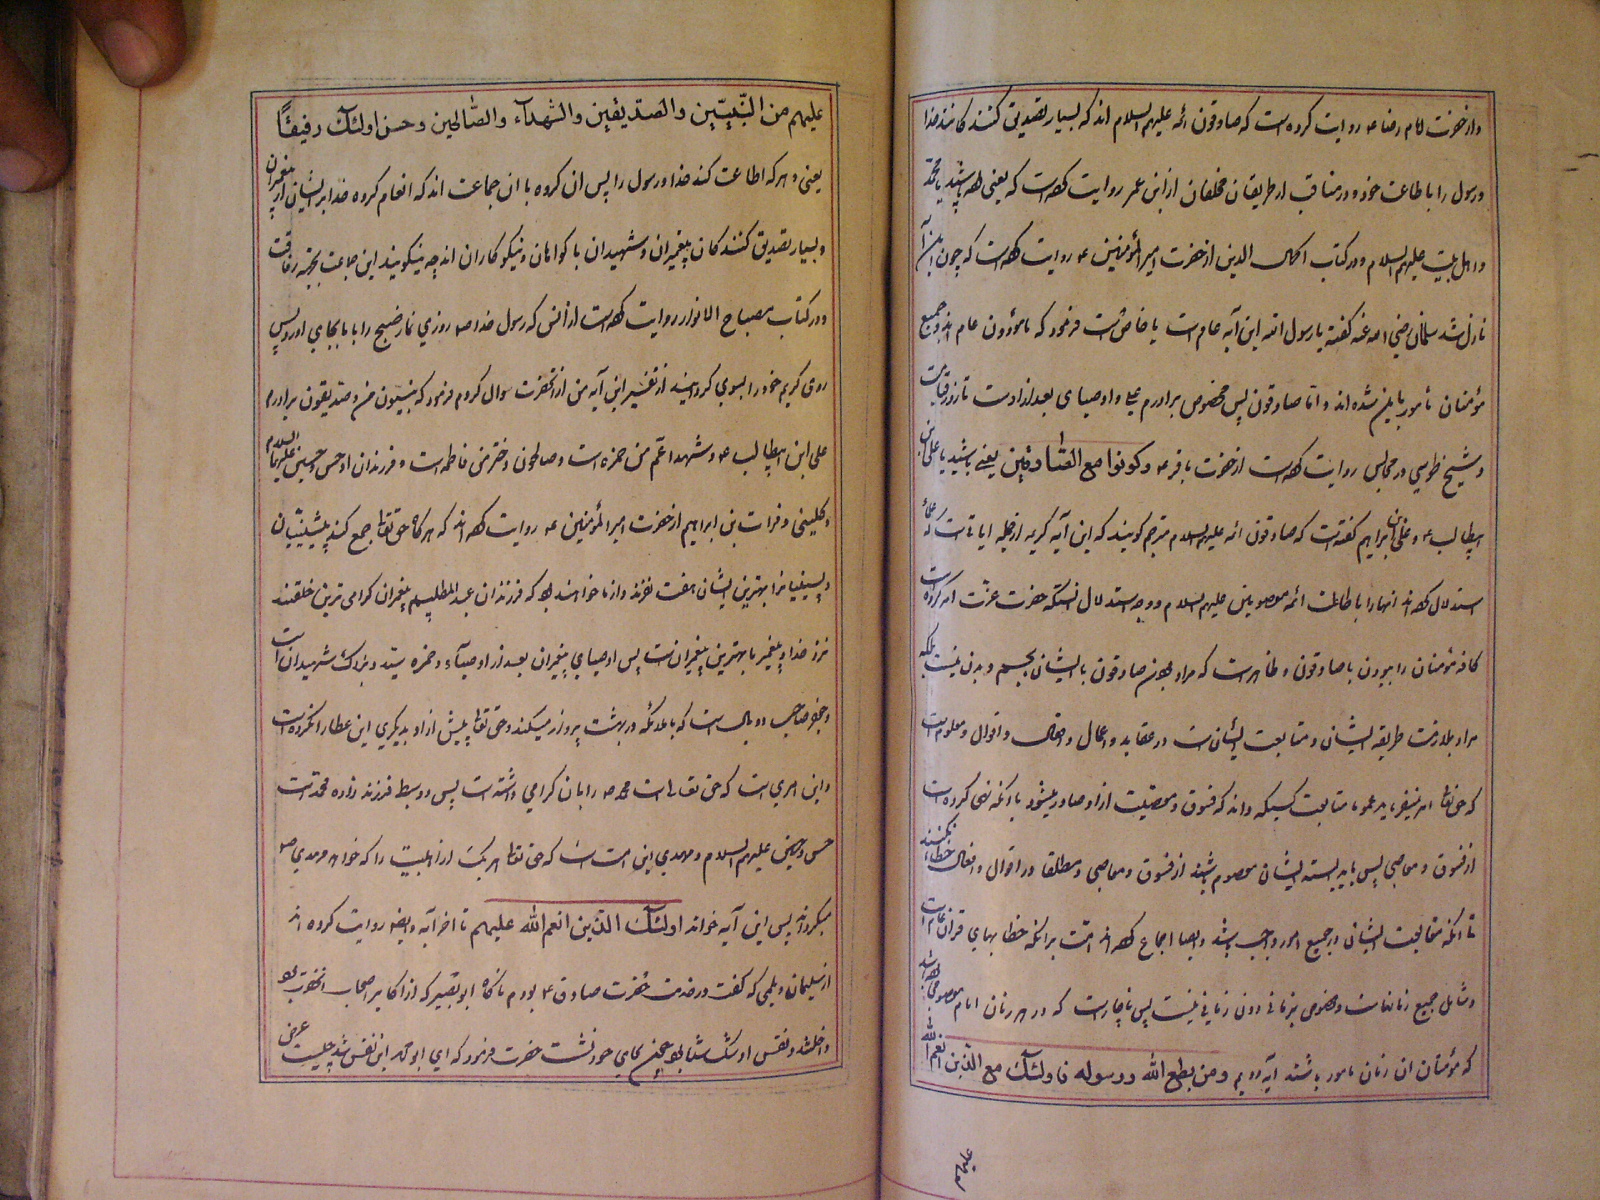 و از حضرت امام رضا ع روایت کرده است که صادقون ائمه علیهم السلام اند که بسیار تصدیق کنندکانند خدا
و رسول را باطاعت خود و در مناقب از طریقان مخالفان از ابن عمر روایت کرده است که یعنی بوده باشید با محمد
و اهل بیت علیهم السلام و در کتاب اکمال الدین از حضرت امیر المؤمنین ع روایت کرده است که چون این آیه
نازل شد سلمان رضی الله عنه کفت یا رسول الله این آیه عام است یا خاص است فرمود که مامورون عام اند و جمیع
مؤمنان مأمور باین شده اند و اما صادقون پس مخصوص برادرم علی و اوصیای بعد از اوست تا روز قیامت
و شیخ طوسی در مجالس روایت کرده است از حضرت باقر ع وکونوا مع الصّادقین یعنی باشید با علی بن
ابیطالب ع و علی بن ابراهیم کفته است که صادقون ائمه علیهم السلام مترجم کوید که این آیه کریمه از جمله ایاتی است که علما
استدلال کرده اند انها را باطاعت ائمه معصومین علیهم السلام و وجه استدلال انستکه حضرت عزت امر کرده است
کافه مؤمنان را ببودن با صادقون و ظاهر است که مراد بودن صادقون با ایشان بجسم و بدن نیست بلکه
مراد ملازمت طریقه ایشان و متابعت ایشان است در عقاید و اعمال و افعال و اقوال و معلوم است
که حق تعالی امر نمیفرماید عموما متابعت کسیکه داند که فسوق و معصیت از او صادر میشود با انکه نهی کرده است
از فسوق و معاصی پس باید البته ایشان معصوم باشند از فسوق و معاصی و مطلقا در اقوال و افعال خطاء نکنند
تا انکه متابعت ایشان در جمیع امور واجب باشد و ایضا اجماع کرده اند امت برانکه خطابهای قران عام است
و شامل جمیع زمانهاست و مخصوص بزمانی دون زمانی نیست پس ناچار است که در هر زمان امام معصومی بوده باشد
که مؤمنان ان زمان مامور باشند آیه دویم ومن یطع الله ورسوله فاولئک مع الذین انعم الله
علیهم
علیهم من النّبیّین والصّدیقین والشهدآء والصّالحین وحسن اولئک رفیقًا
یعنی و هر که اطاعت کند خدا و رسول را پس ان کروه با ان جماعت اند که انعام کرده خدا بر ایشان از پیغمبران
و بسیار تصدیق کنندکان پیغمبران و شهیدان یا کواهان و نیکو کاران اند چه نیکویند این جماعت بجهة رفاقت
و در کتاب مصباح الانوار روایت کرده است از انس که رسول خدا ص روزی نماز صبح را با ما بجای اورد پس
روی کریم خود را بسوی ما کردانید از تفسیر این آیه من از انحضرت سوال کردم فرمود که نبیّون منم و صدیقون برادرم
علی ابن ابیطالب ع و شهدا عمّ من حمزه است و صالحون دختر من فاطمه است و فرزندان او حسن و حسین علیهما السلام
و کلینی و فرات بن ابراهیم از حضرت امیر المؤمنین ع روایت کرده اند که هر کاه حق تعالی جمع کند پیشینیان
و پسینیان را بهترین ایشان هفت نفرند و از ما خواهند بود که فرزندان عبد المطلبیم پیغمبران کرامی ترین خلقند
نزد خدا و پیغمبر ما بهترین پیغمبران است پس اوصیای پیغمبران بعد از اوصیآء و حمزه سیّد و بزرک شهیدان است
و جعفر صاحب دو بال است که با ملائکه در بهشت پرواز میکند و حق تعالی پیش از او بدیکری این عطا را نکرده است
و این امری است که حق تعالی است محمد ص را بان کرامی داشته است پس دو سبط فرزند زاده محمد است
حسن و حسین علیهم السلام و مهدی این امت است که حق تعالی هر یک از اهلبیت را که خواهد مهدی ص
میکرداند پس این آیه خواند اولئک الذین انعم الله علیهم تا اخر آیه و ایضا روایت کرده اند
از سلیمان دیلمی که کفت در خدمت حضرت صادق ع بودم ناکاه ابو بصیر که از اکابر اصحاب انحضرت بود
داخل شد و نفس او تنک شتاب بود چون بجای خود نشست حضرت فرمود که ای ابو محمد این نفس شد چیست عرض